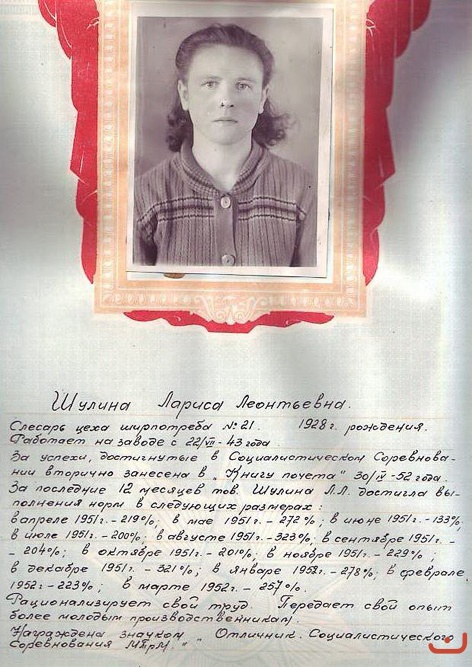 Шулина Лариса Леонтьевна.
Слесарь цеха ширпотреба №21. 1928 г. рождения.
Работает на заводе с 22/VII-43 года
За успехи, достигнутые в Социалистическом Соревнова-
нии вторично занесена в "Книгу почета" 30/IV-52 года.
За последние 12 месяцев тов. Шулина Л.Л. достигла вы-
полнения норм в следующих размерах:
в апреле 1951г.-219%, в мае 1951г.-272%, в июне 1951г.-133%,
в июле 1951г.-200%; в августе 1951г.-323%; в сентябре 1951г. -
- 204%; в октябре 1951г.-201%, в ноябре 1951г.-229%;
в декабре 1951г.-321%; в январе 1952г.-278%; в феврале
1952г.-223%; в марте 1952г.-257%.
Рационализирует свой труд. Передает свой опыт
более молодым производственникам.
Награждена значком "Отличник Социалистического
Соревнования МТрМ."